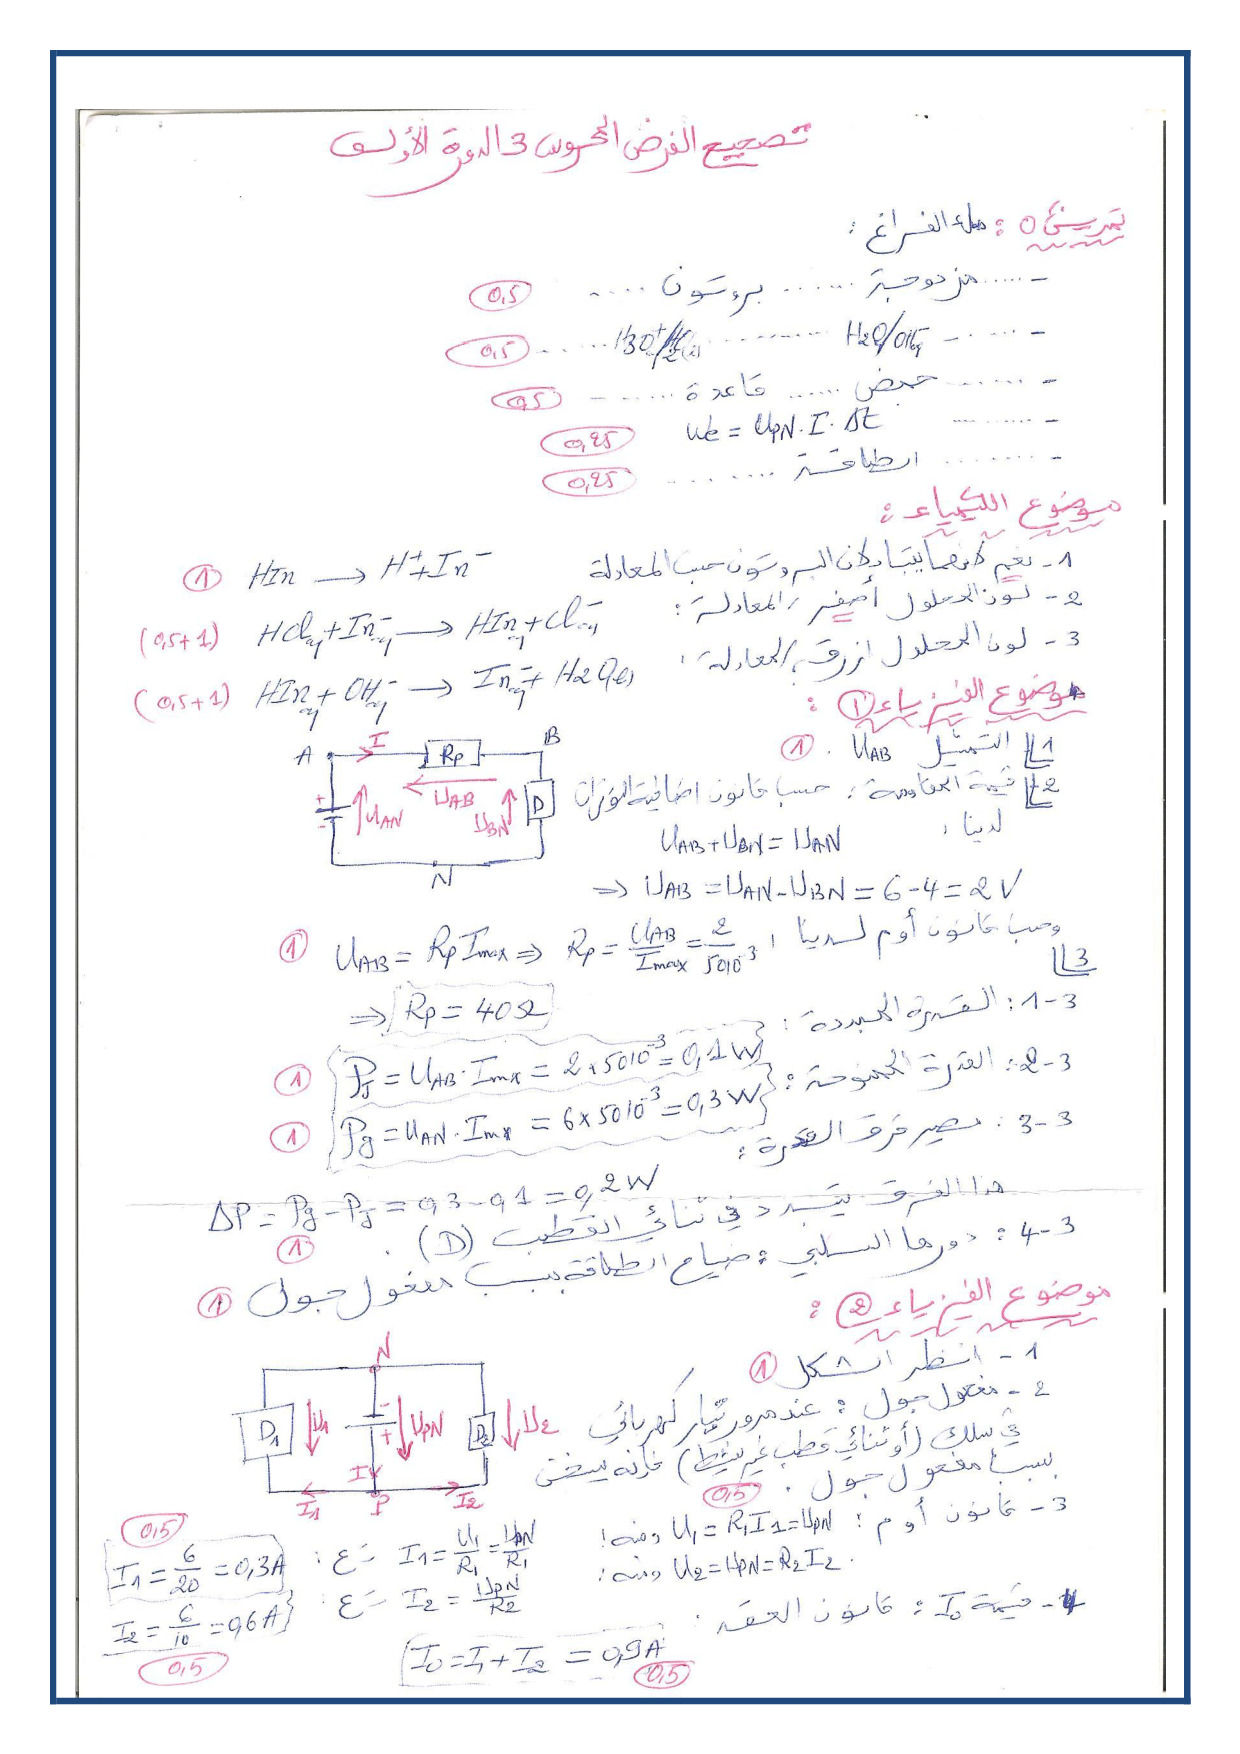 تصحيح الفرض المحروس 3 الدورة الأولى
تمرين 0 : ملء الفراغ :
- ..... مزدوجة ...... بروتون ..... 0,5
- ...... H2O/OH-aq ........ H3O+/H2O(l) ...... 0,5
- ....... حمض ...... قاعدة ...... 0,5
- ........ We = UPN . I . Δt 0,25
- ........ الطاقة ........ 0,25
موضوع الكيمياء :
1- نعم لأنهما يتبادلان البروتون حسب المعادلة HIn → H+ + In- 1
2- لون المحلول أصفر، المعادلة : HClaq + In-aq → HInaq + Cl-aq (0,5+1)
3- لون المحلول ازرق، المعادلة : HInaq + OH-aq → In-aq + H2O(l) (0,5+1)
موضوع الفيزياء 1 :
1 التمثيل UAB . 1
A I Rp B
UAB UAN UBN D
N
2 قيمة المقاومة : حسب قانون اضافية التوترات
لدينا :
UAB + UBN = UAN
⇒ UAB = UAN - UBN = 6 - 4 = 2 V
وحسب قانون أوم لدينا : UAB = Rp Imax ⇒ Rp = UAB/Imax = 2/50 10^-3 1
3
⇒ Rp = 40 Ω
1-3 : القدرة المبددة :
PJ = UAB . Imax = 2 x 50 10^-3 = 0,1 W 1
2-3 : القدرة الممنوحة :
Pg = UAN . Imax = 6 x 50 10^-3 = 0,3 W 1
3-3 : مصير فرق القدرة :
ΔP = Pg - PJ = 0,3 - 0,1 = 0,2 W
هذا الفرق يتبدد في ثنائي القطب (D) . 1
4-3 : دورها السلبي : ضياع الطاقة بسبب مفعول جول 1
موضوع الفيزياء 2 :
1- انظر الشكل 1
N
D1 U1 - + UPN D2 U2
I
I1 P I2
2- مفعول جول : عند مرور تيار كهربائي
في سلك (أو ثنائي قطب غير نشيط) فإنه يسخن
بسبب مفعول جول . 0,5
3- قانون أوم : U1 = R1I1 = UPN ومنه : I1 = U1/R1 = UPN/R1 ت ع : I1 = 6/20 = 0,3A 0,5
U2 = UPN = R2 I2 ومنه : I2 = UPN/R2 ت ع : I2 = 6/10 = 0,6 A 0,5
4- قيمة I0 : قانون العقد :
I0 = I1 + I2 = 0,9 A 0,5